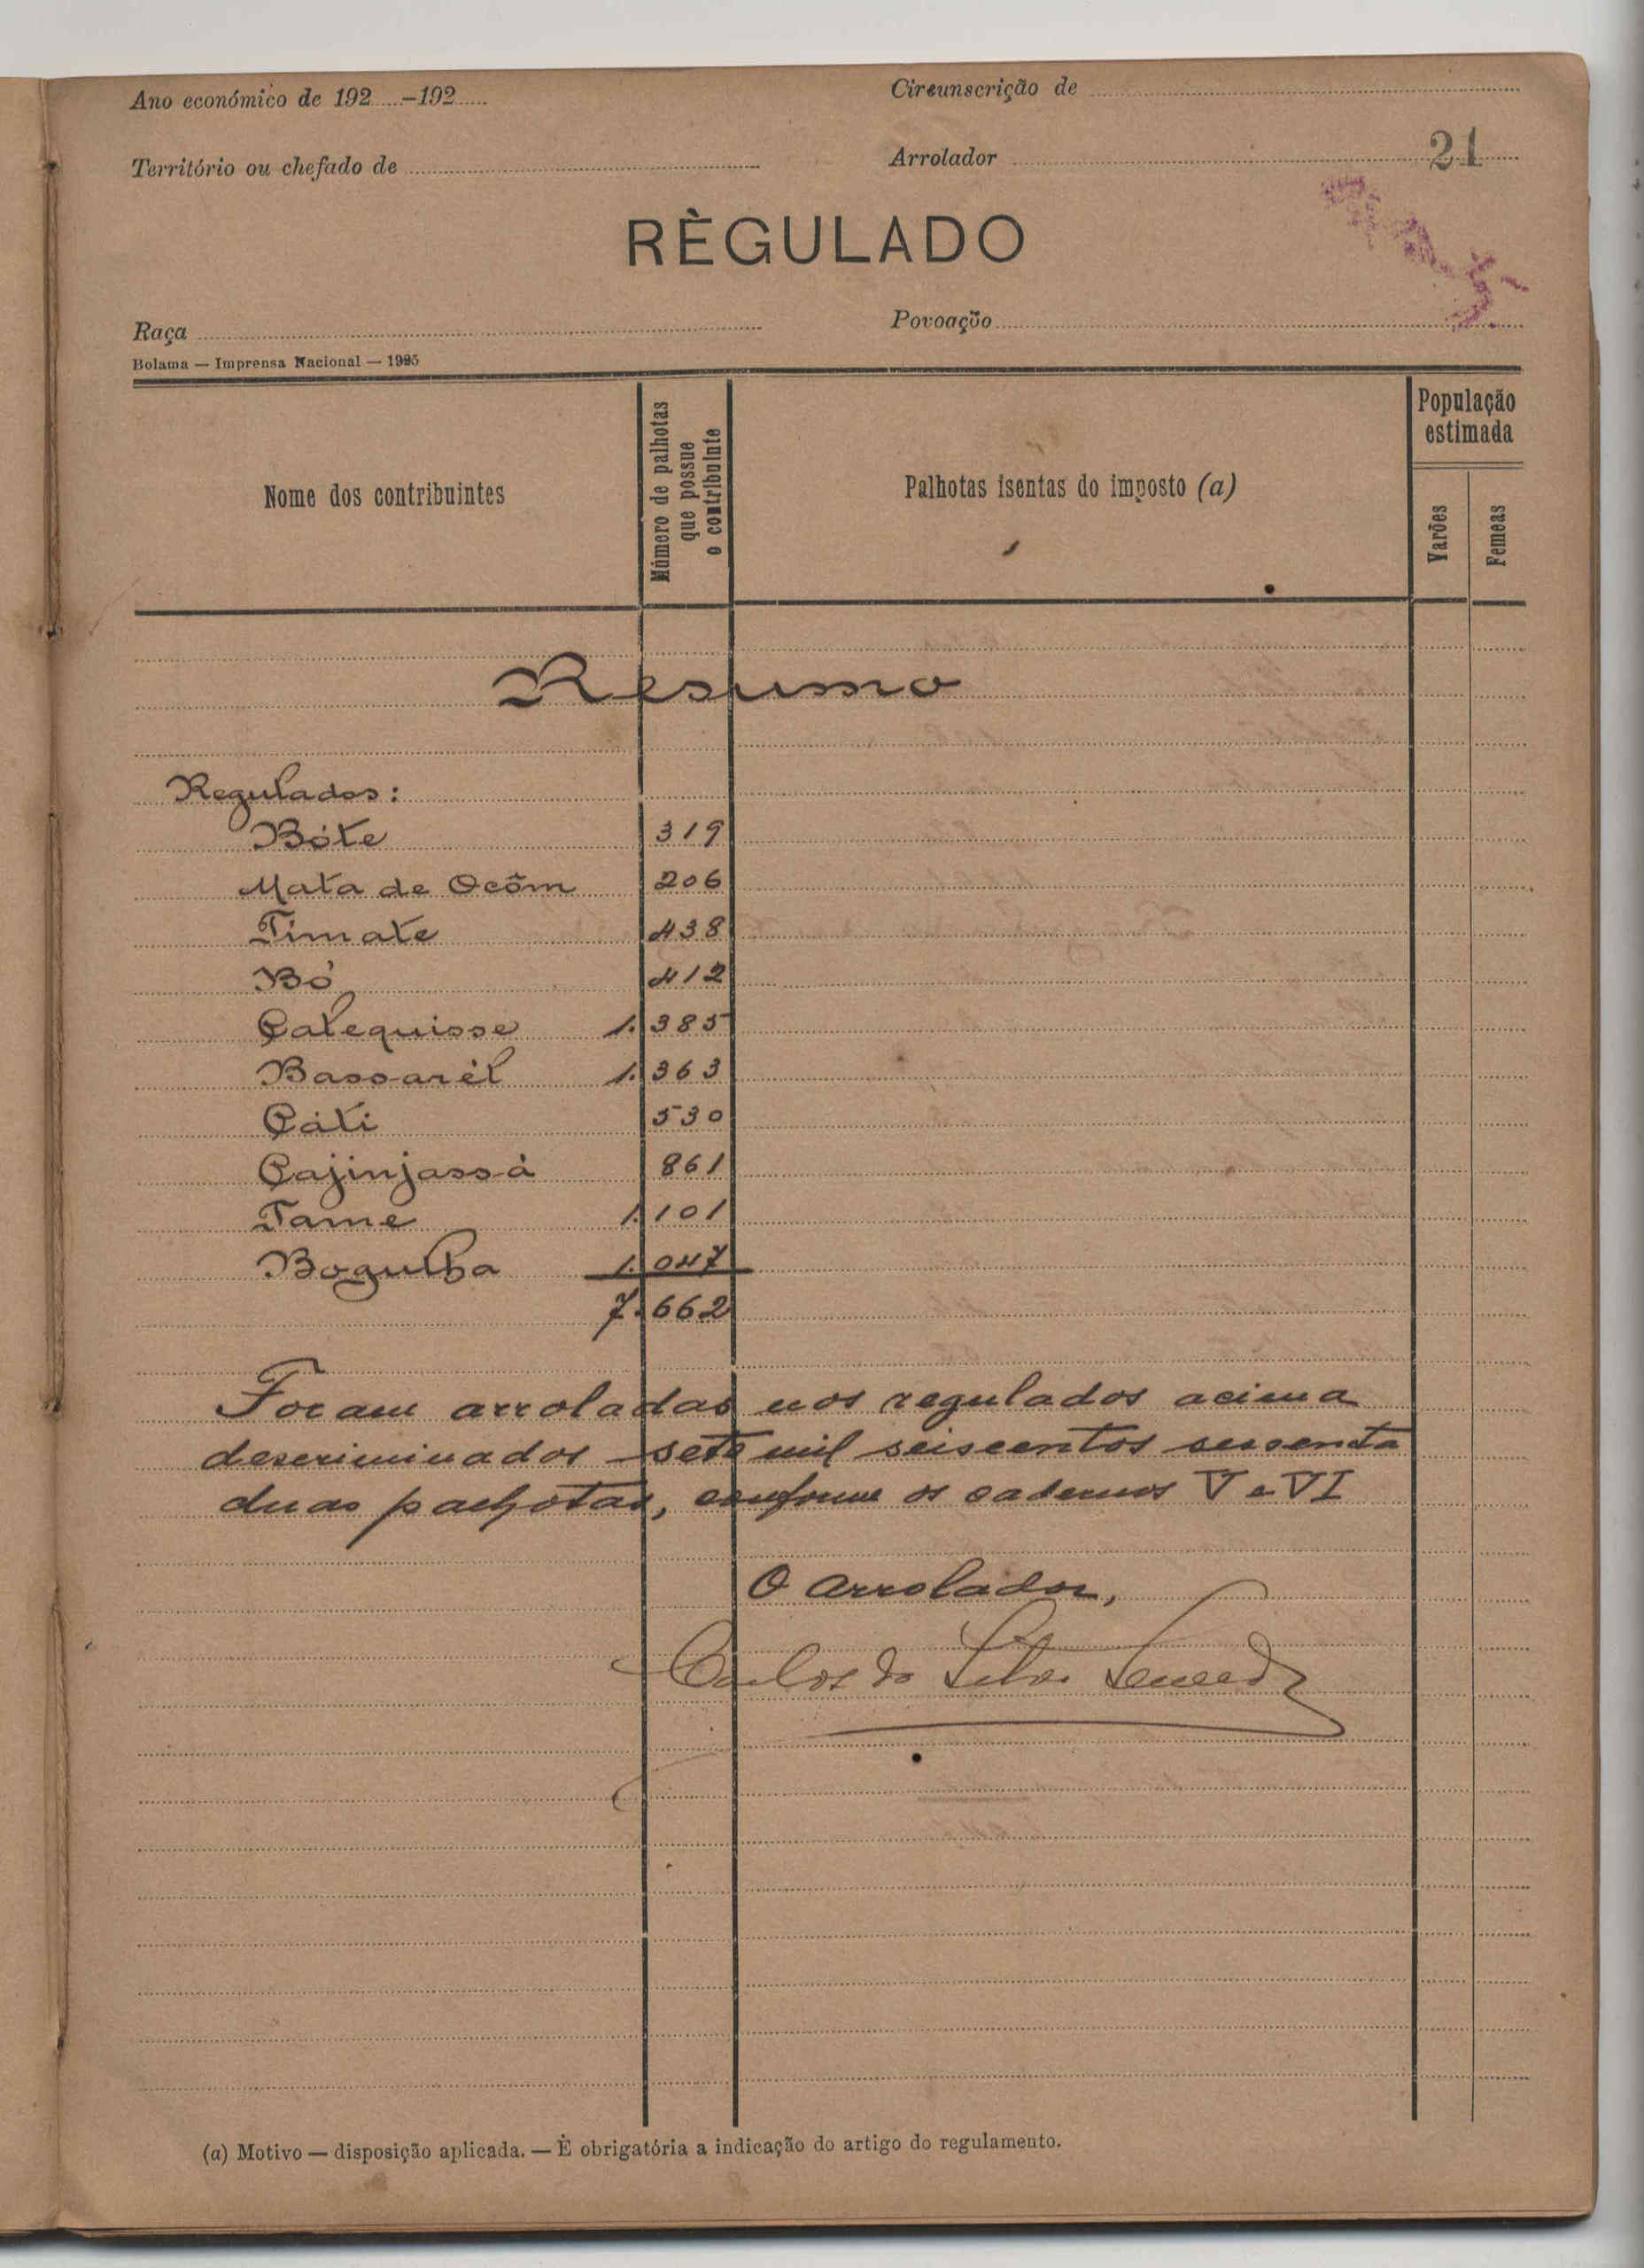 Ano económico de 192.....-192.....
Circunscrição de
Território ou chefado de
Arrolador
21
RÈGULADO
Raça
Povoação
Bolama — Imprensa Nacional — 1925
Nome dos contribuintes
Número de palhotas que possue o contribuinte
Palhotas isentas do imposto (a)
População estimada
Varões
Femeas
Resumo
Regulados:
Bóte 319
Mata de Ocôm 206
Timate 438
Bó 412
Calequisse 1.385
Bassarél 1.363
Cáti 530
Cajinjassá 861
Tame 1.101
Bogulha 1.047
7.662
Foram arroladas nos regulados acima
descriminados sete mil seiscentos sessenta
duas palhotas, conforme os cadernos V e VI
O arrolador,
Carlos da Silva
(a) Motivo — disposição aplicada. — È obrigatória a indicação do artigo do regulamento.